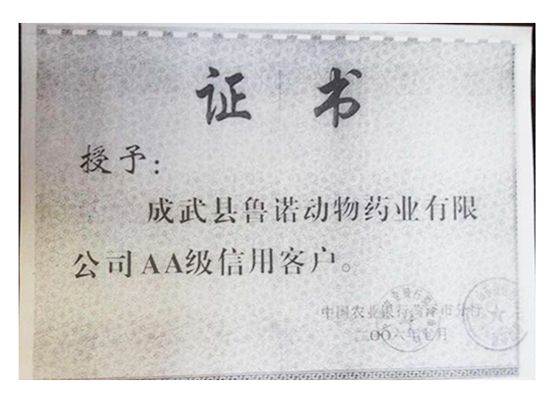 证 书
授予：
成武县鲁诺动物药业有限
公司AA级信用客户。
中国农业银行菏泽市分行
二00六年七月